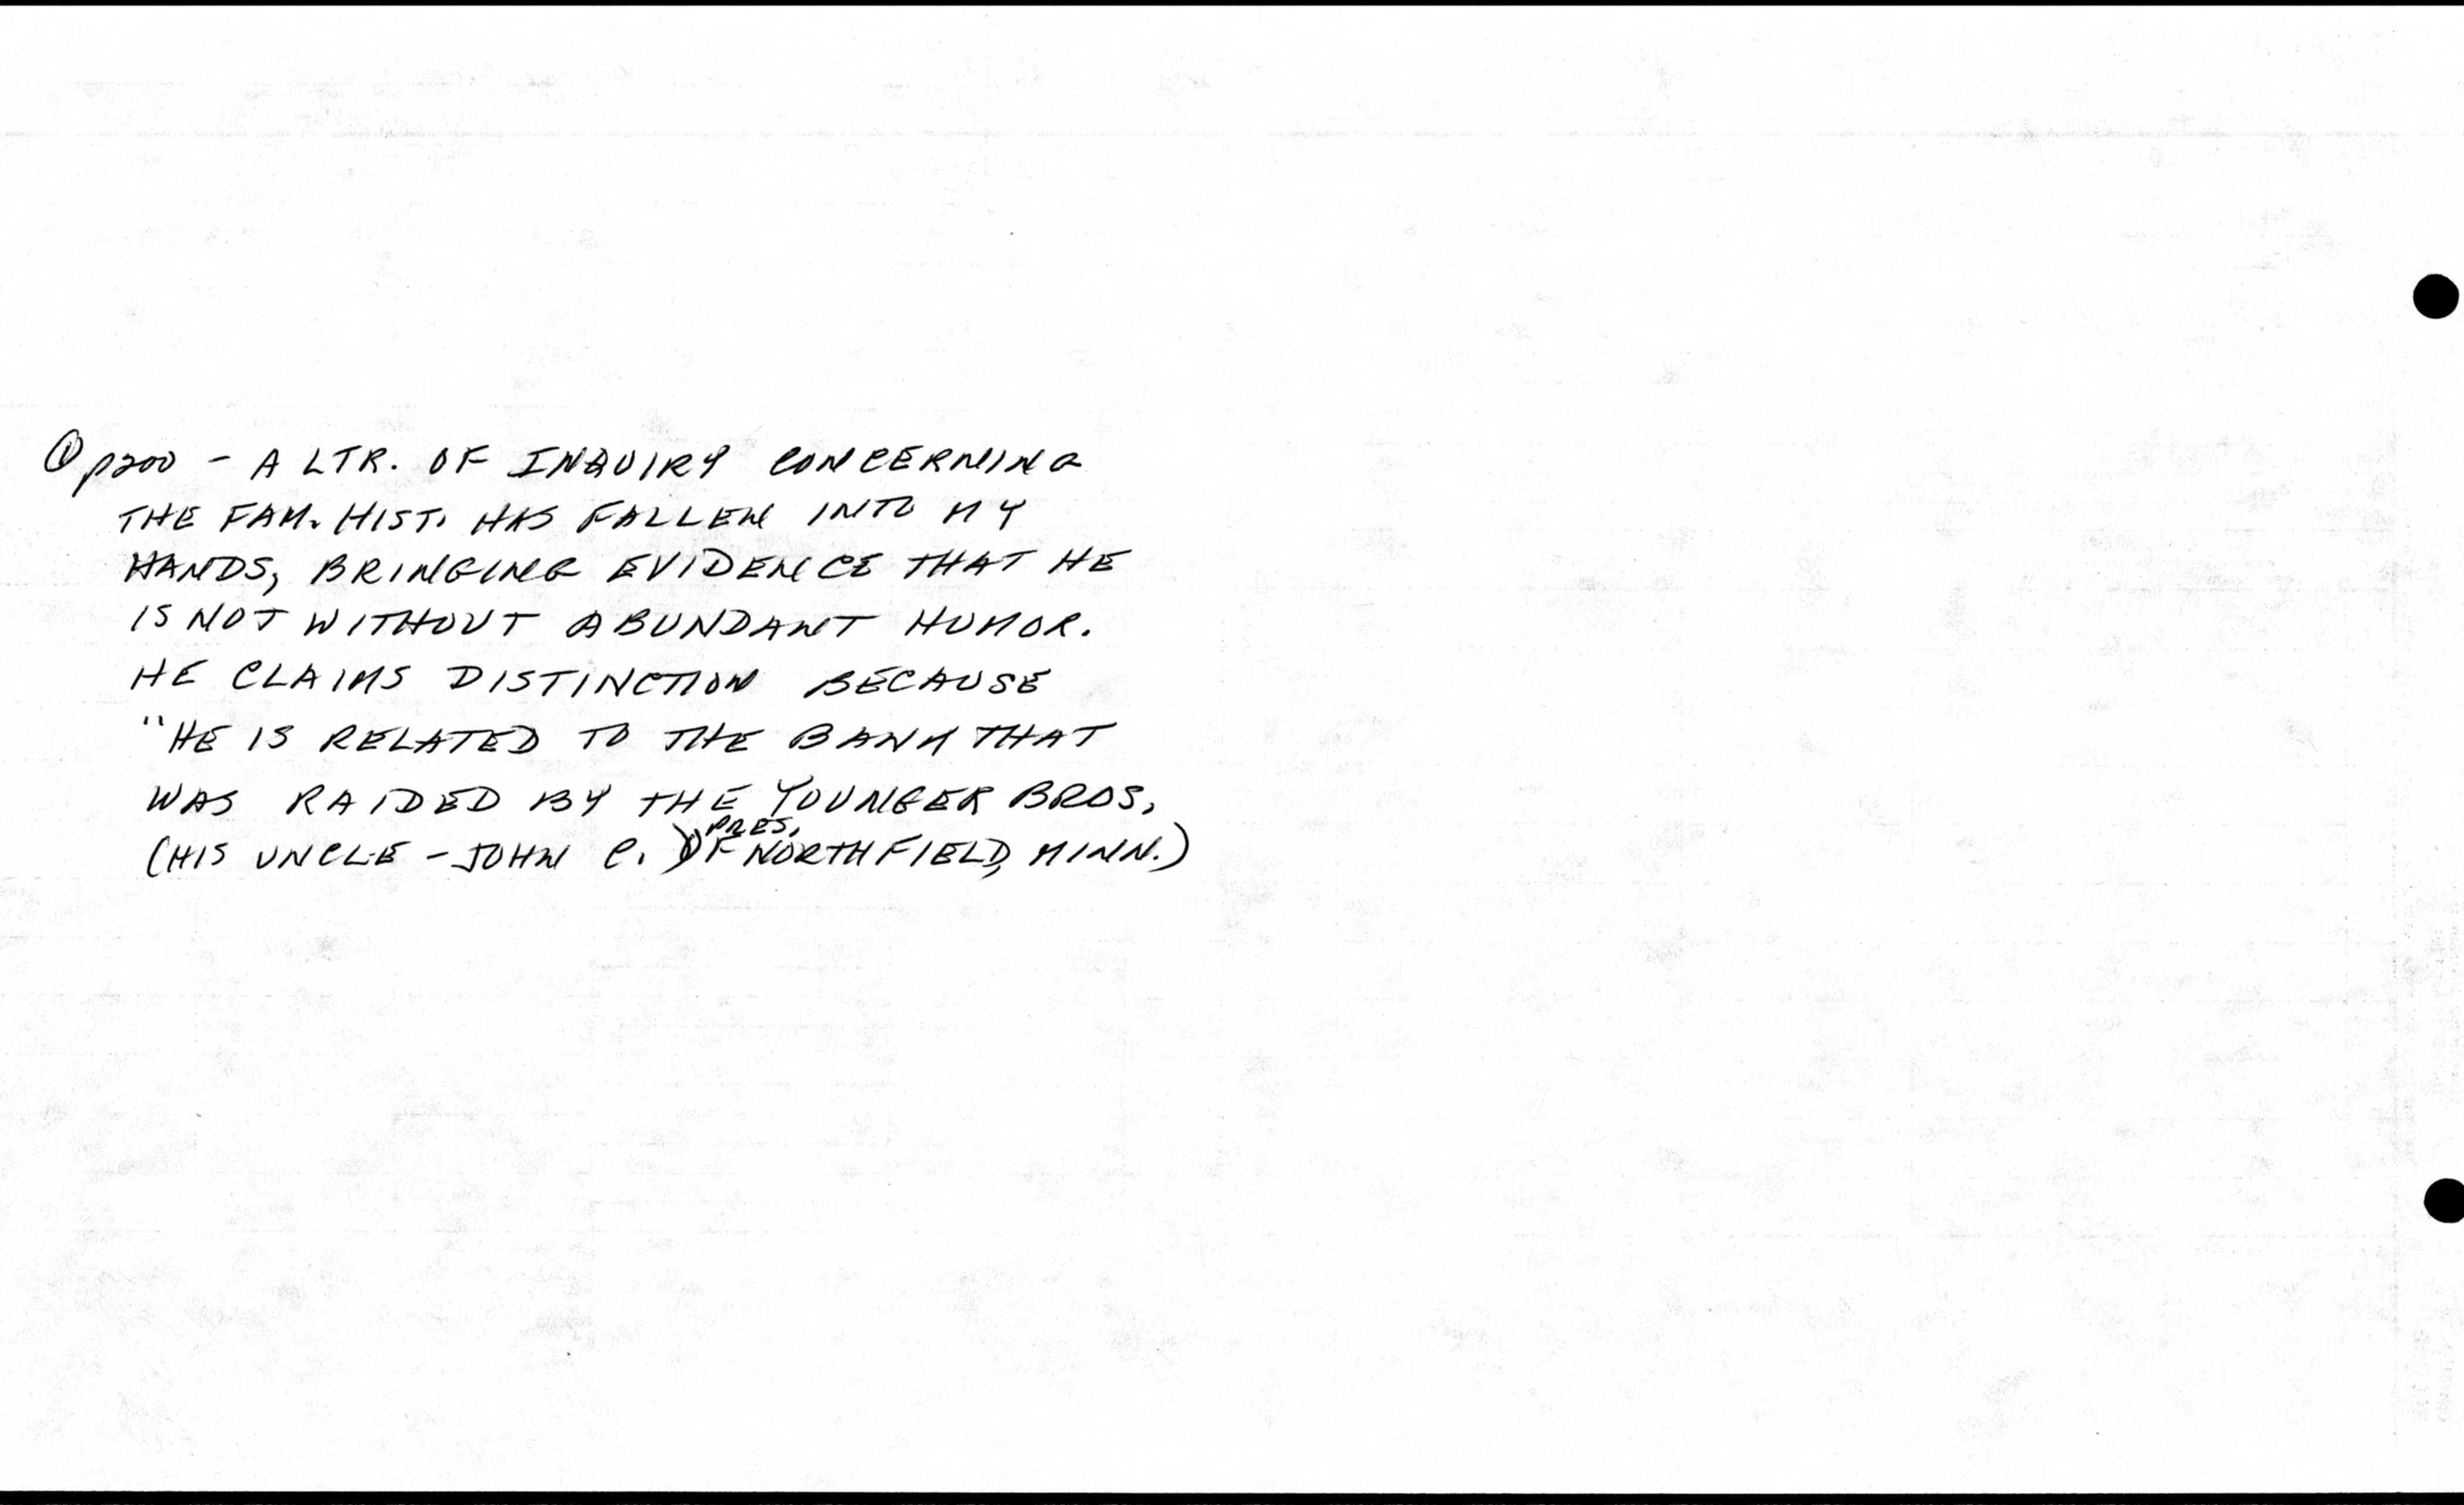 ① p200 - A LTR. OF INQUIRY CONCERNING
THE FAM. HIST. HAS FALLEN INTO MY
HANDS, BRINGING EVIDENCE THAT HE
IS NOT WITHOUT ABUNDANT HUMOR.
HE CLAIMS DISTINCTION BECAUSE
"HE IS RELATED TO THE BANK THAT
WAS RAIDED BY THE YOUNGER BROS,
PRES.
(HIS UNCLE - JOHN C.) OF NORTHFIELD, MINN.)